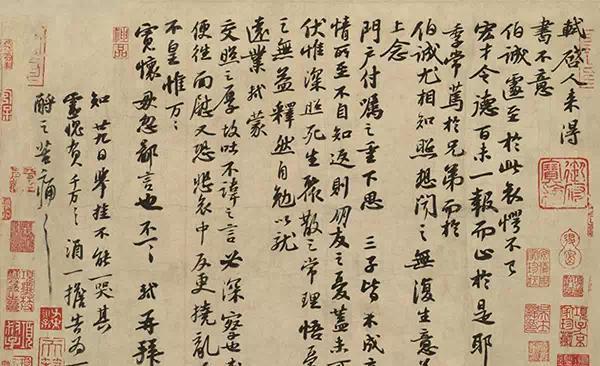 軾啓人来得
書不意
伯誠遽至於此哀愕不已
宏才令德百未一報而止於是耶
季常篤於兄弟而於
伯誠尤相知照想聞之無復生意
上念
門户付囑之重下思三子皆不成
情所至不自知返則朋友之憂蓋未可
伏惟深照死生聚散之常理悟憂
之無益釋然自勉以就
遠業軾蒙
交照之厚故吐不諱之言必深察也本
便往面慰又恐悲哀中反更撓亂
不皇惟万万
寬懷毋忽鄙言也不一一軾再拜
知廿九日舉挂不能一哭其
靈愧負千万千万酒一擔告为一
酹之苦痛苦痛